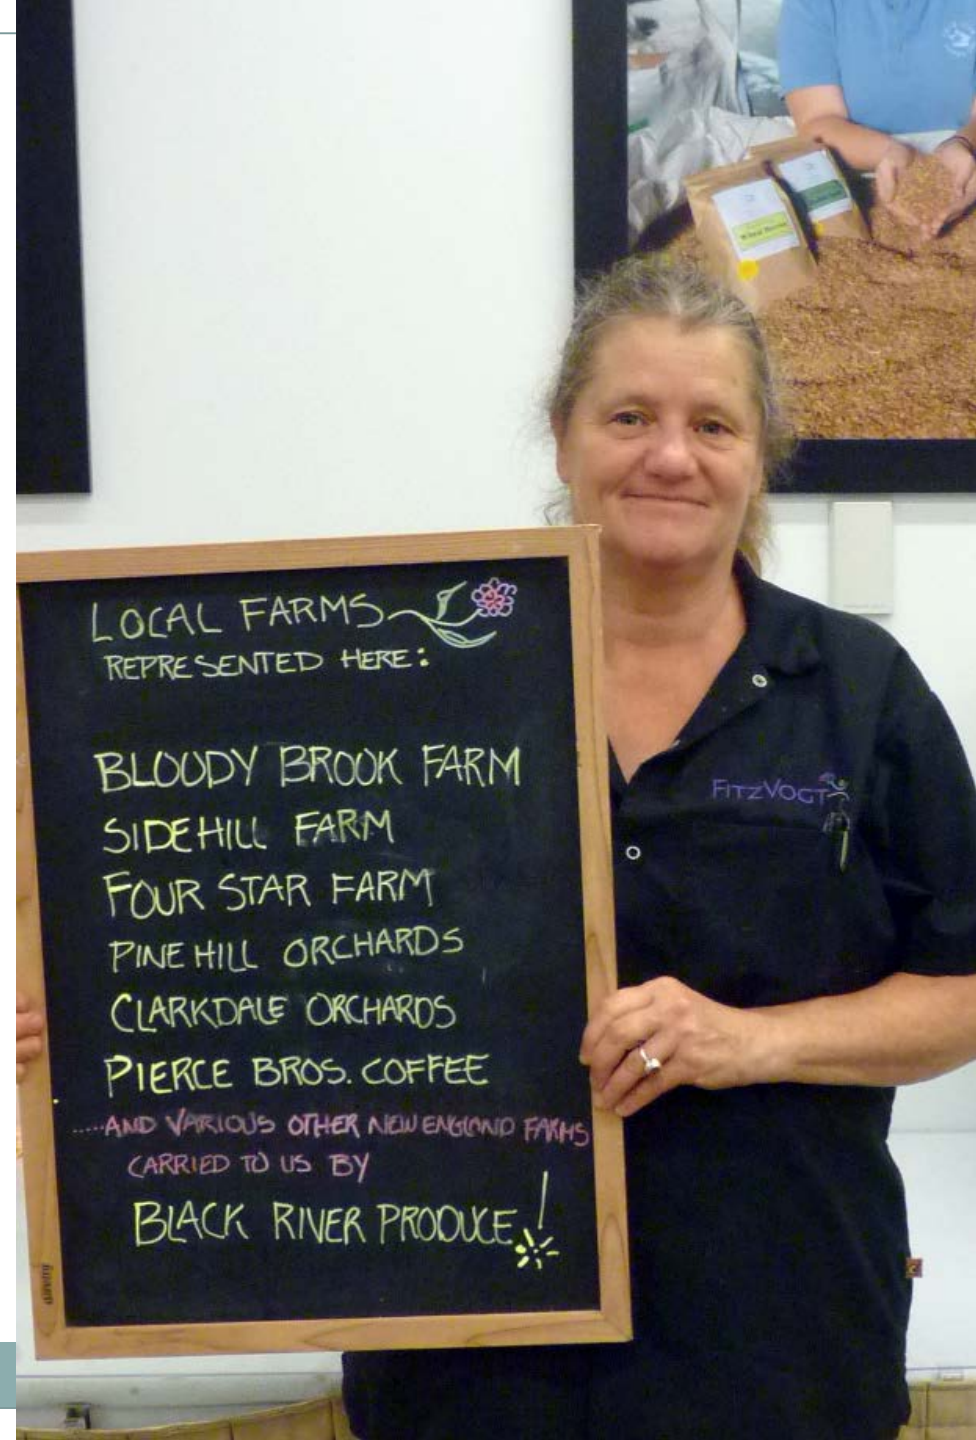 LOCAL FARMS
REPRESENTED HERE:
BLOODY BROOK FARM
SIDEHILL FARM
FOUR STAR FARM
PINE HILL ORCHARDS
CLARKDALE ORCHARDS
PIERCE BROS. COFFEE
.....AND VARIOUS OTHER NEW ENGLAND FARMS
CARRIED TO US BY
BLACK RIVER PRODUCE!
FITZVOGT